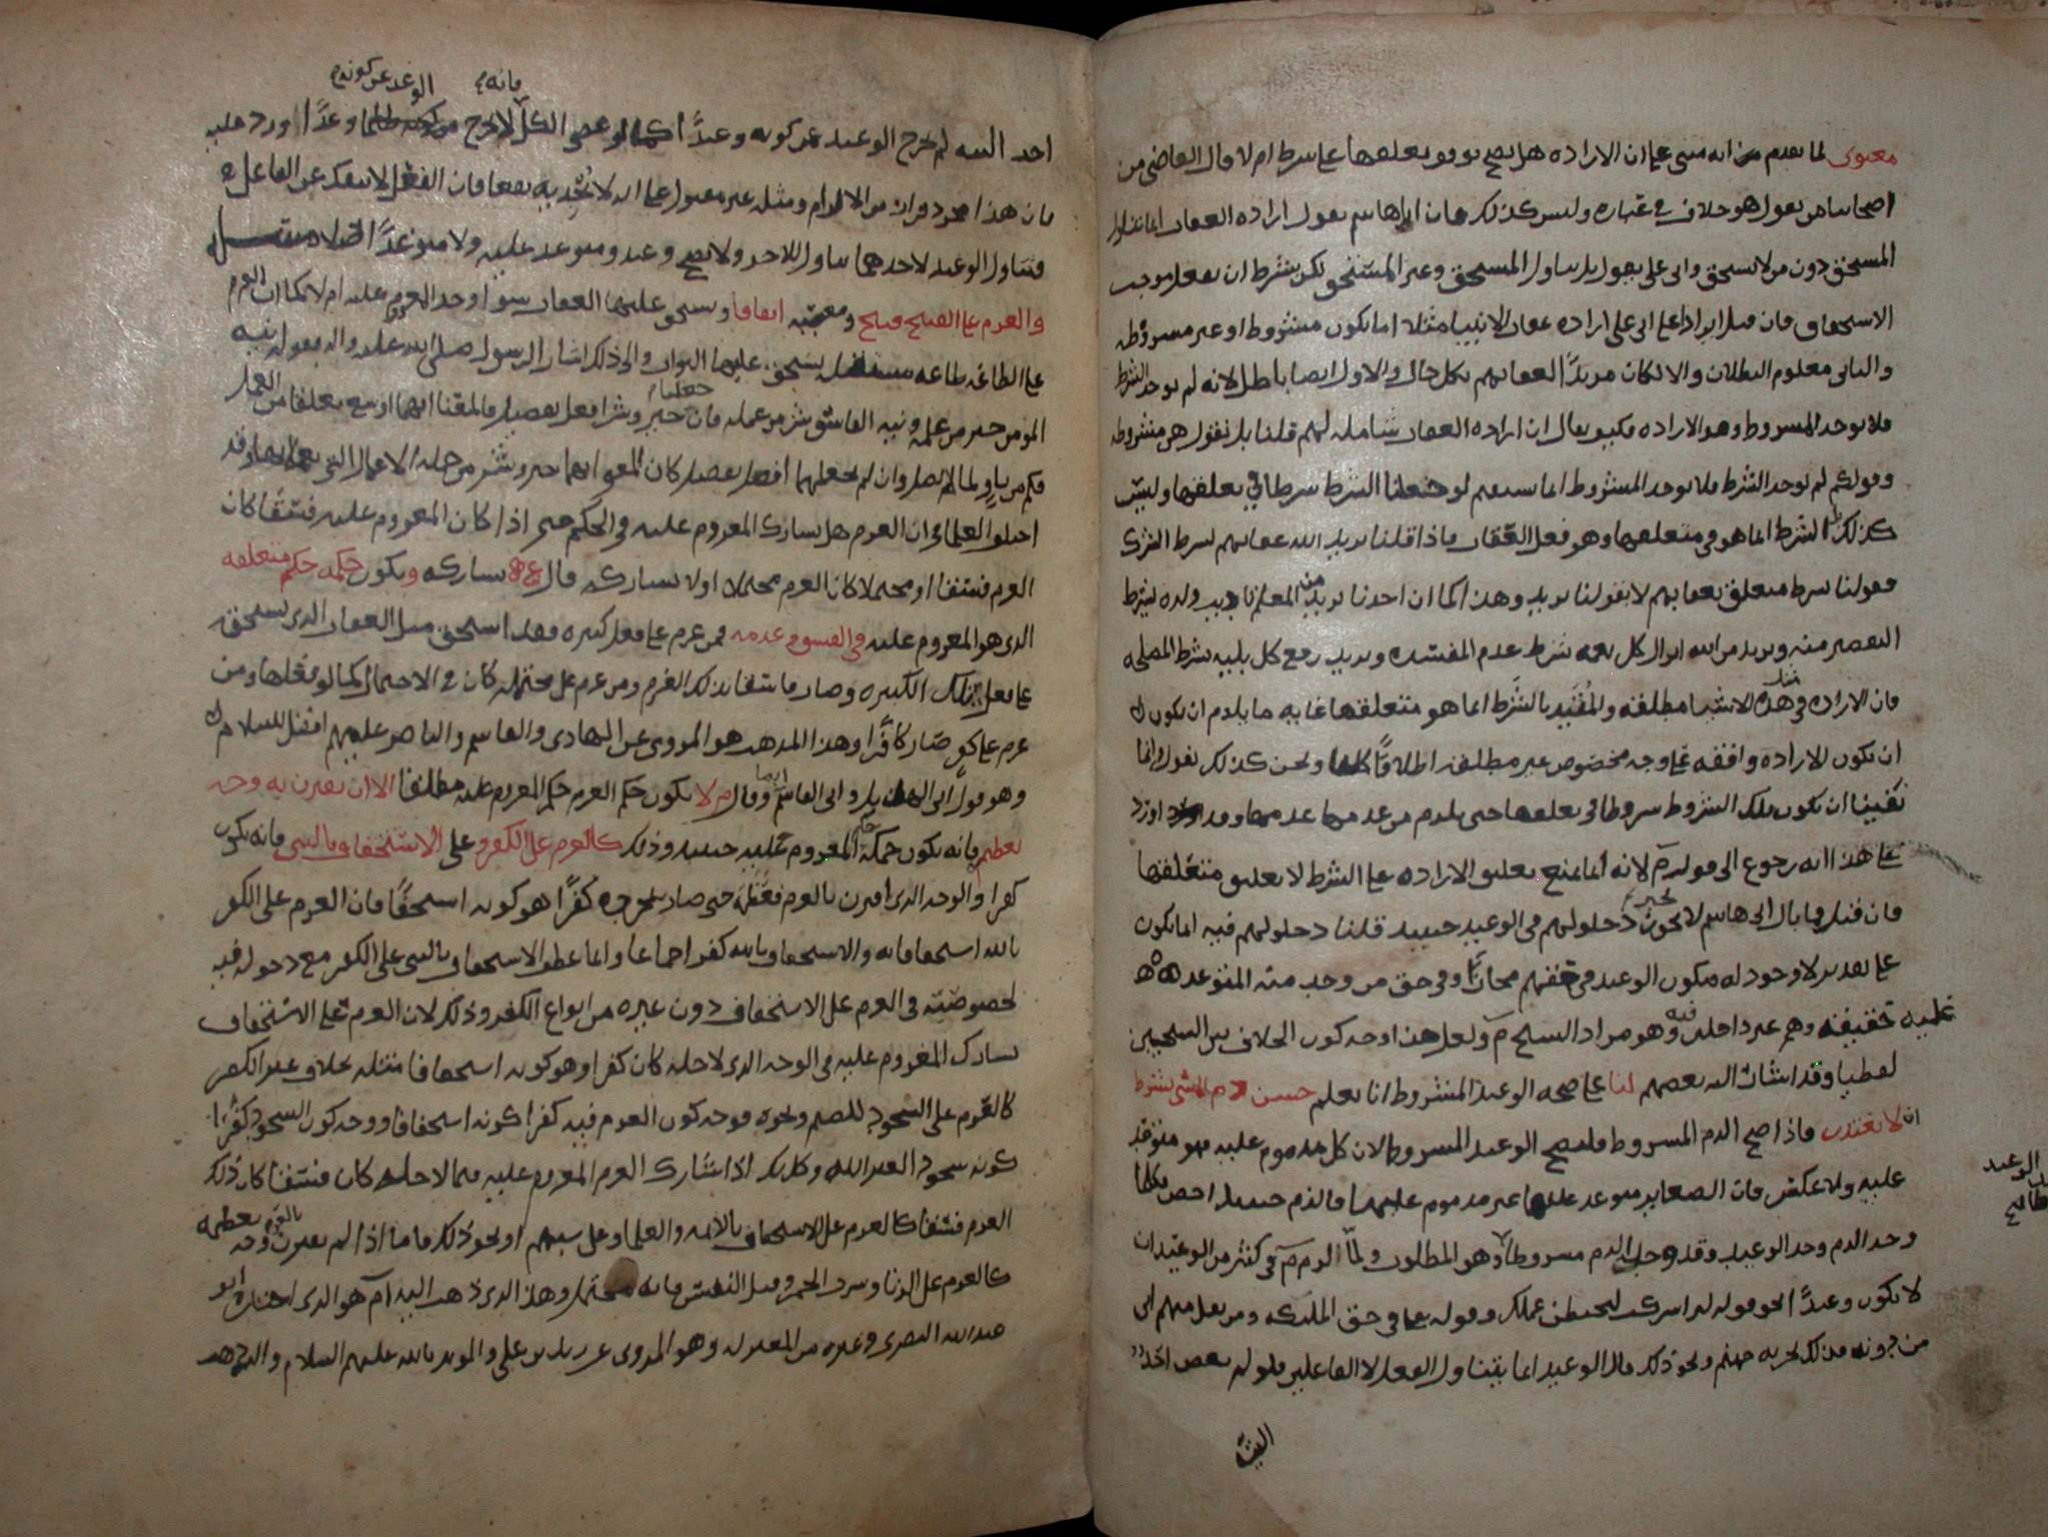 معنوى لما تقدم من انه مبنى على ان الاراده هل يصح توقف تعلقها على شرط ام لا قال القاضى من
اصحابنا من يقول هو خلاف فى عباره وليس كذلك فان ابا هاشم يقول اراده العقاب انما تتناول
المستحق دون من لا يستحق وابى على يقول بل يتناول المستحق وغير المستحق لكن بشرط ان يفعل موجب
الاستحقاق فان قيل ايرادا على ابى على اراده عقاب الانبيا مثلا اما يكون مشروطه او غير مشروطه
والثانى معلوم البطلان والا لكان مريدًا لعقابهم بكل حال والاول ايضا باطل لانه لم يوجد الشرط
فلا يوجد المشروط وهو الاراده فكيف يقال ان اراده العقاب شامله لهم قلنا بل نقول هى مشروطه
وقولكم لم يوجد الشرط فلا يوجد المشروط انما يستقيم لو جعلنا الشرط شرطا فى تعلقها وليس
كذلك بل الشرط انما هو فى متعلقها وهو فعل العقاب فاذا قلنا يريد الله عقابهم بشرط الشرك
فقولنا بشرط متعلق بعقابهم لا بقولنا يريد وهذا كما ان احدنا يريد من المعلم تاديب ولده بشرط
التقصير منه ويريد من الله انزال كل نعمه بشرط عدم المفسده ويريد رفع كل بليه بشرط المصلحه
فان الاراده فى هذه الاشيا مطلقه والمقيد بالشرط انما هو متعلقها غايه ما يلزم ان يكون
ان تكون الاراده واقفه على وجه مخصوص غير مطلقه اطلاقًا ونحن كذلك نقول وانما
يكفينا ان تكون تلك الشروط شروطا فى تعلقها حتى يلزم من عدمها عدمها وقد اورد
على هذا انه رجوع الى قوله م لانه انما يمنع تعليق الاراده على الشرط لا تعليق متعلقها
فان قيل فما بال ابى هاشم لا يجوز دخولهم فى الوعيد حينئذ قلنا دخولهم فيه انما يكون
على تقدير لا وجود له فيكون الوعيد فى حقهم مجازًا وفى حق من وجب منه المتوعد
عليه حقيقه وهم غير داخلين فيه وهو مراد الشيخ م ولعل هذا وجه كون الخلاف بين الشيخين
لفظيا وقد اشار اليه بعضهم لنا على صحه الوعيد المشروط انا نعلم حسن ذم المسى بشرط
ان لا يعتذر فاذا صح الذم المشروط فليصح الوعيد المشروط لان كل مذموم عليه فهو متوعد
عليه ولا عكس فان الصغاير متوعد عليها غير مذموم عليها فالذم حينئذ اخص فكلما
وجد الذم وجد الوعيد وقد وجد الذم مشروطا وهو المطلوب ولما الزم م فى كثير من الوعيد ان
لا يكون وعيدًا نحو قوله لئن اشركت ليحبطن عملك وقوله تعالى فى حق الملئكه ومن يقل منهم انى
من دونه فذلك نجزيه جهنم ونحو ذلك قال الوعيد انما يتناول الفعل لا الفاعلين فلو لم يعص احد
الوعيد
احد البته لم يخرج الوعيد عن كونه وعيدًا كما لو عصى الكل فانه لا يخرج الوعد عن كونه وعدًا اورد عليه
بان هذا مجرد فرار من الالزام ومثله غير مقبول على انه لا يجديه نفعا فان الفعل لا ينفك عن الفاعل
فتناول الوعيد لاحدهما تناول للاخر ولا يصح وعيد ومتوعد عليه ولا متوعدًا
والعزم على القبيح قبيح ومعصيه اتفاقا ويستحق عليهما العقاب سوا وجد المعزوم عليه ام لا كما ان العزم
على الطاعه طاعه يستحق عليهما الثواب والى ذلك اشار الرسول صلى الله عليه واله بقوله نيه
المومن خير من عمله ونيه الفاسق شر من عمله فان جعلنا خير وشر افعل تفضيل فالمعنا انهما اوسع تعلقا من العمل
فكم من ناو لما لم يفعل وان لم نجعلهما افعل تفضيل كان المعنى انهما خير وشر من جمله الاعمال التى وقد
اختلف العلما فى ان العزم هل يشارك المعزوم عليه فى الحكم حتى اذا كان المعزوم عليه فسقًا كان
العزم فسقا او محتملا كان العزم محتملا اولا يشاركه قال يشاركه ويكون حكمه حكم متعلقه
الذى هو المعزوم عليه فى الفسق وعدمه فمن عزم على فعل كبيره فقد استحق مثل العقاب الذى يستحق
على فعل تلك الكبيره وصار فاسقا بذلك العزم ومن عزم على محتمله كان فى الاحتمال كما لو فعلها ومن
عزم على كفر صار كافرًا وهذا المذهب هو المروى عن الهادى والقاسم والناصر عليهم افضل السلام
وهو قول ابى الهذيل وابى القاسم وقال م لا يكون حكم العزم حكم المعزوم عليه مطلقا الا ان يقترن به وجه
يعظم فانه يكون حكمه حكم المعزوم عليه حينئذ وذلك كالعزم على الكفر وعلى الاستخفاف بالنبى فانه يكون
كفرا والوجه الذى اقترن بالعزم فعظمه حتى صار كفرًا هو كونه استخفافًا فان العزم على الكفر
بالله استخفافا به والاستخفاف بالله كفر اجماعا وانما عطف الاستخفاف بالنبى على الكفر مع دخوله فيه
لخصوصيته فى العزم على الاستخفاف دون غيره من انواع الكفر وذلك لان العزم على الاستخفاف
يشارك المعزوم عليه فى الوجه الذى لاجله كان كفرا وهو كونه استخفافا مثله بخلاف غير الكفر
كالعزم على السجود للصنم ونحوه فوجه كون العزم فيه كفرا كونه استخفافا ووجه كون السجود كفرًا
كونه سجود لغير الله وكذلك اذا شارك العزم المعزوم عليه فيما لاجله كان فسقا كان ذلك
العزم فسقا كالعزم على الاستخفاف بالائمه والعلما وعلى سبهم او نحو ذلك فاما اذا لم يقترن بالعزم وجه يعظمه
كالعزم على الزنا وشرب الخمر وقتل النفس فانه محتمل وهذا الذى ذهب اليه م هو الذى اختاره ابو
عبد الله البصرى وغيره من المعتزله وهو المروى عن زيد بن على والمويد بالله عليهم السلام والذى ذهب